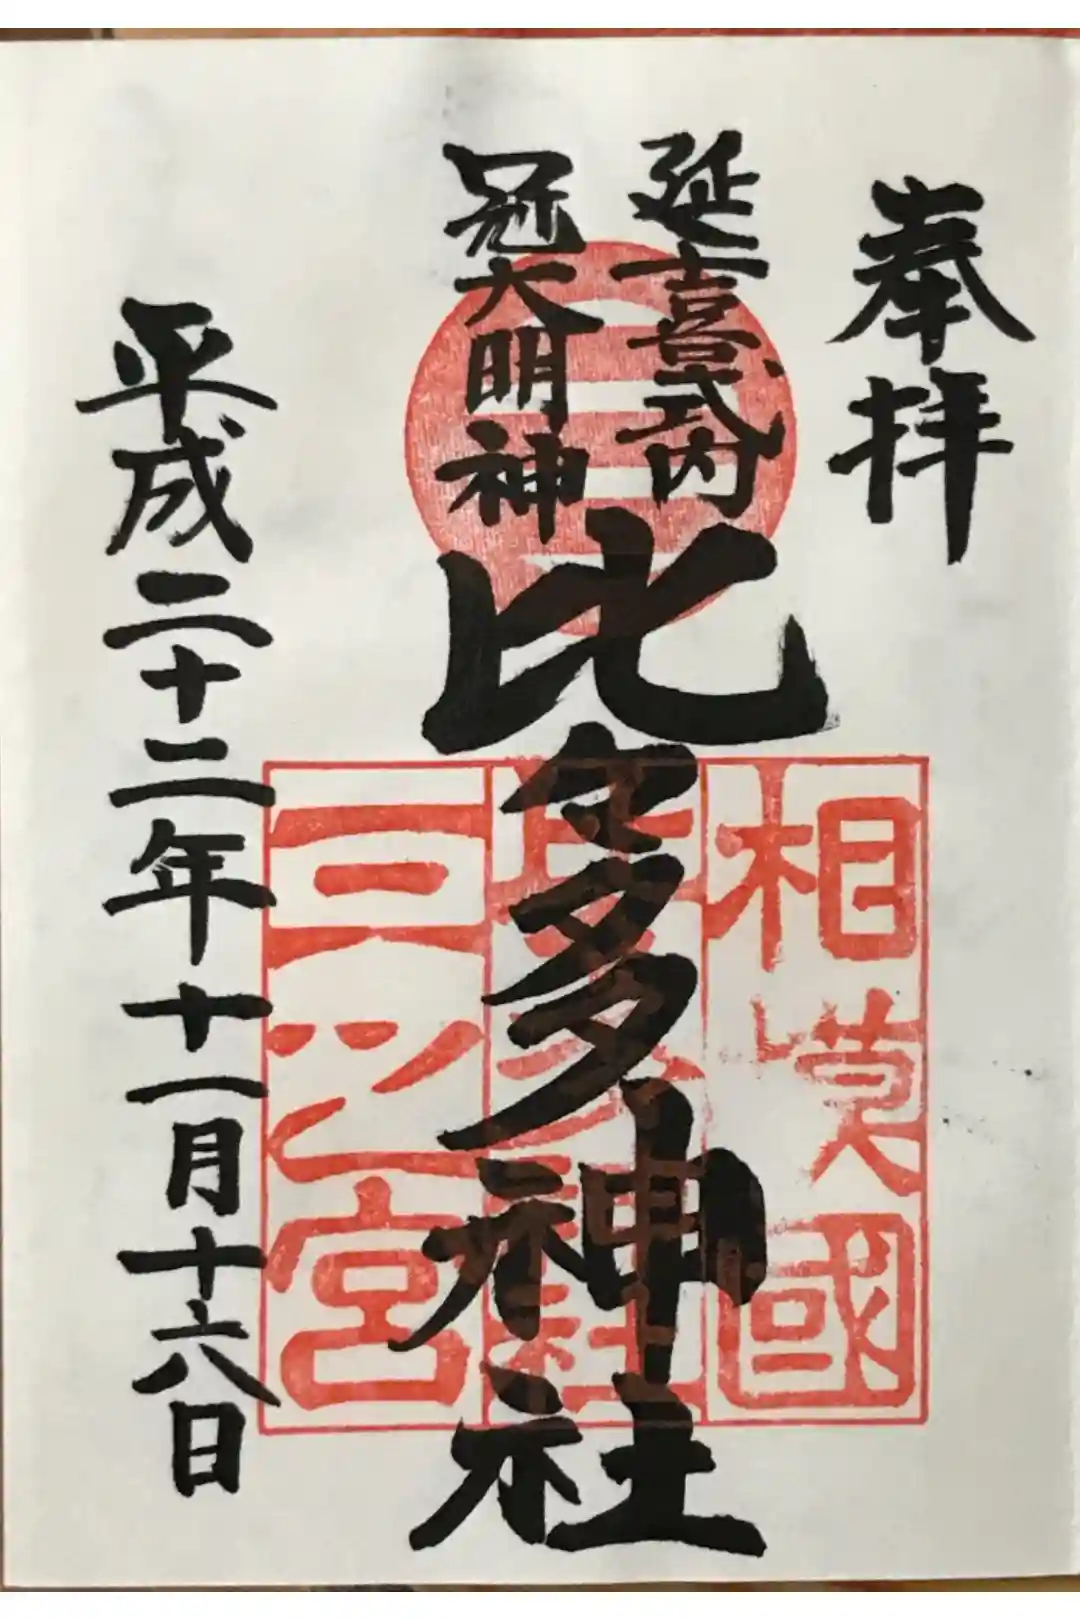 奉拝
延喜式内
冠大明神
比多神社
平成二十二年十一月十六日
相莫國
三之宮